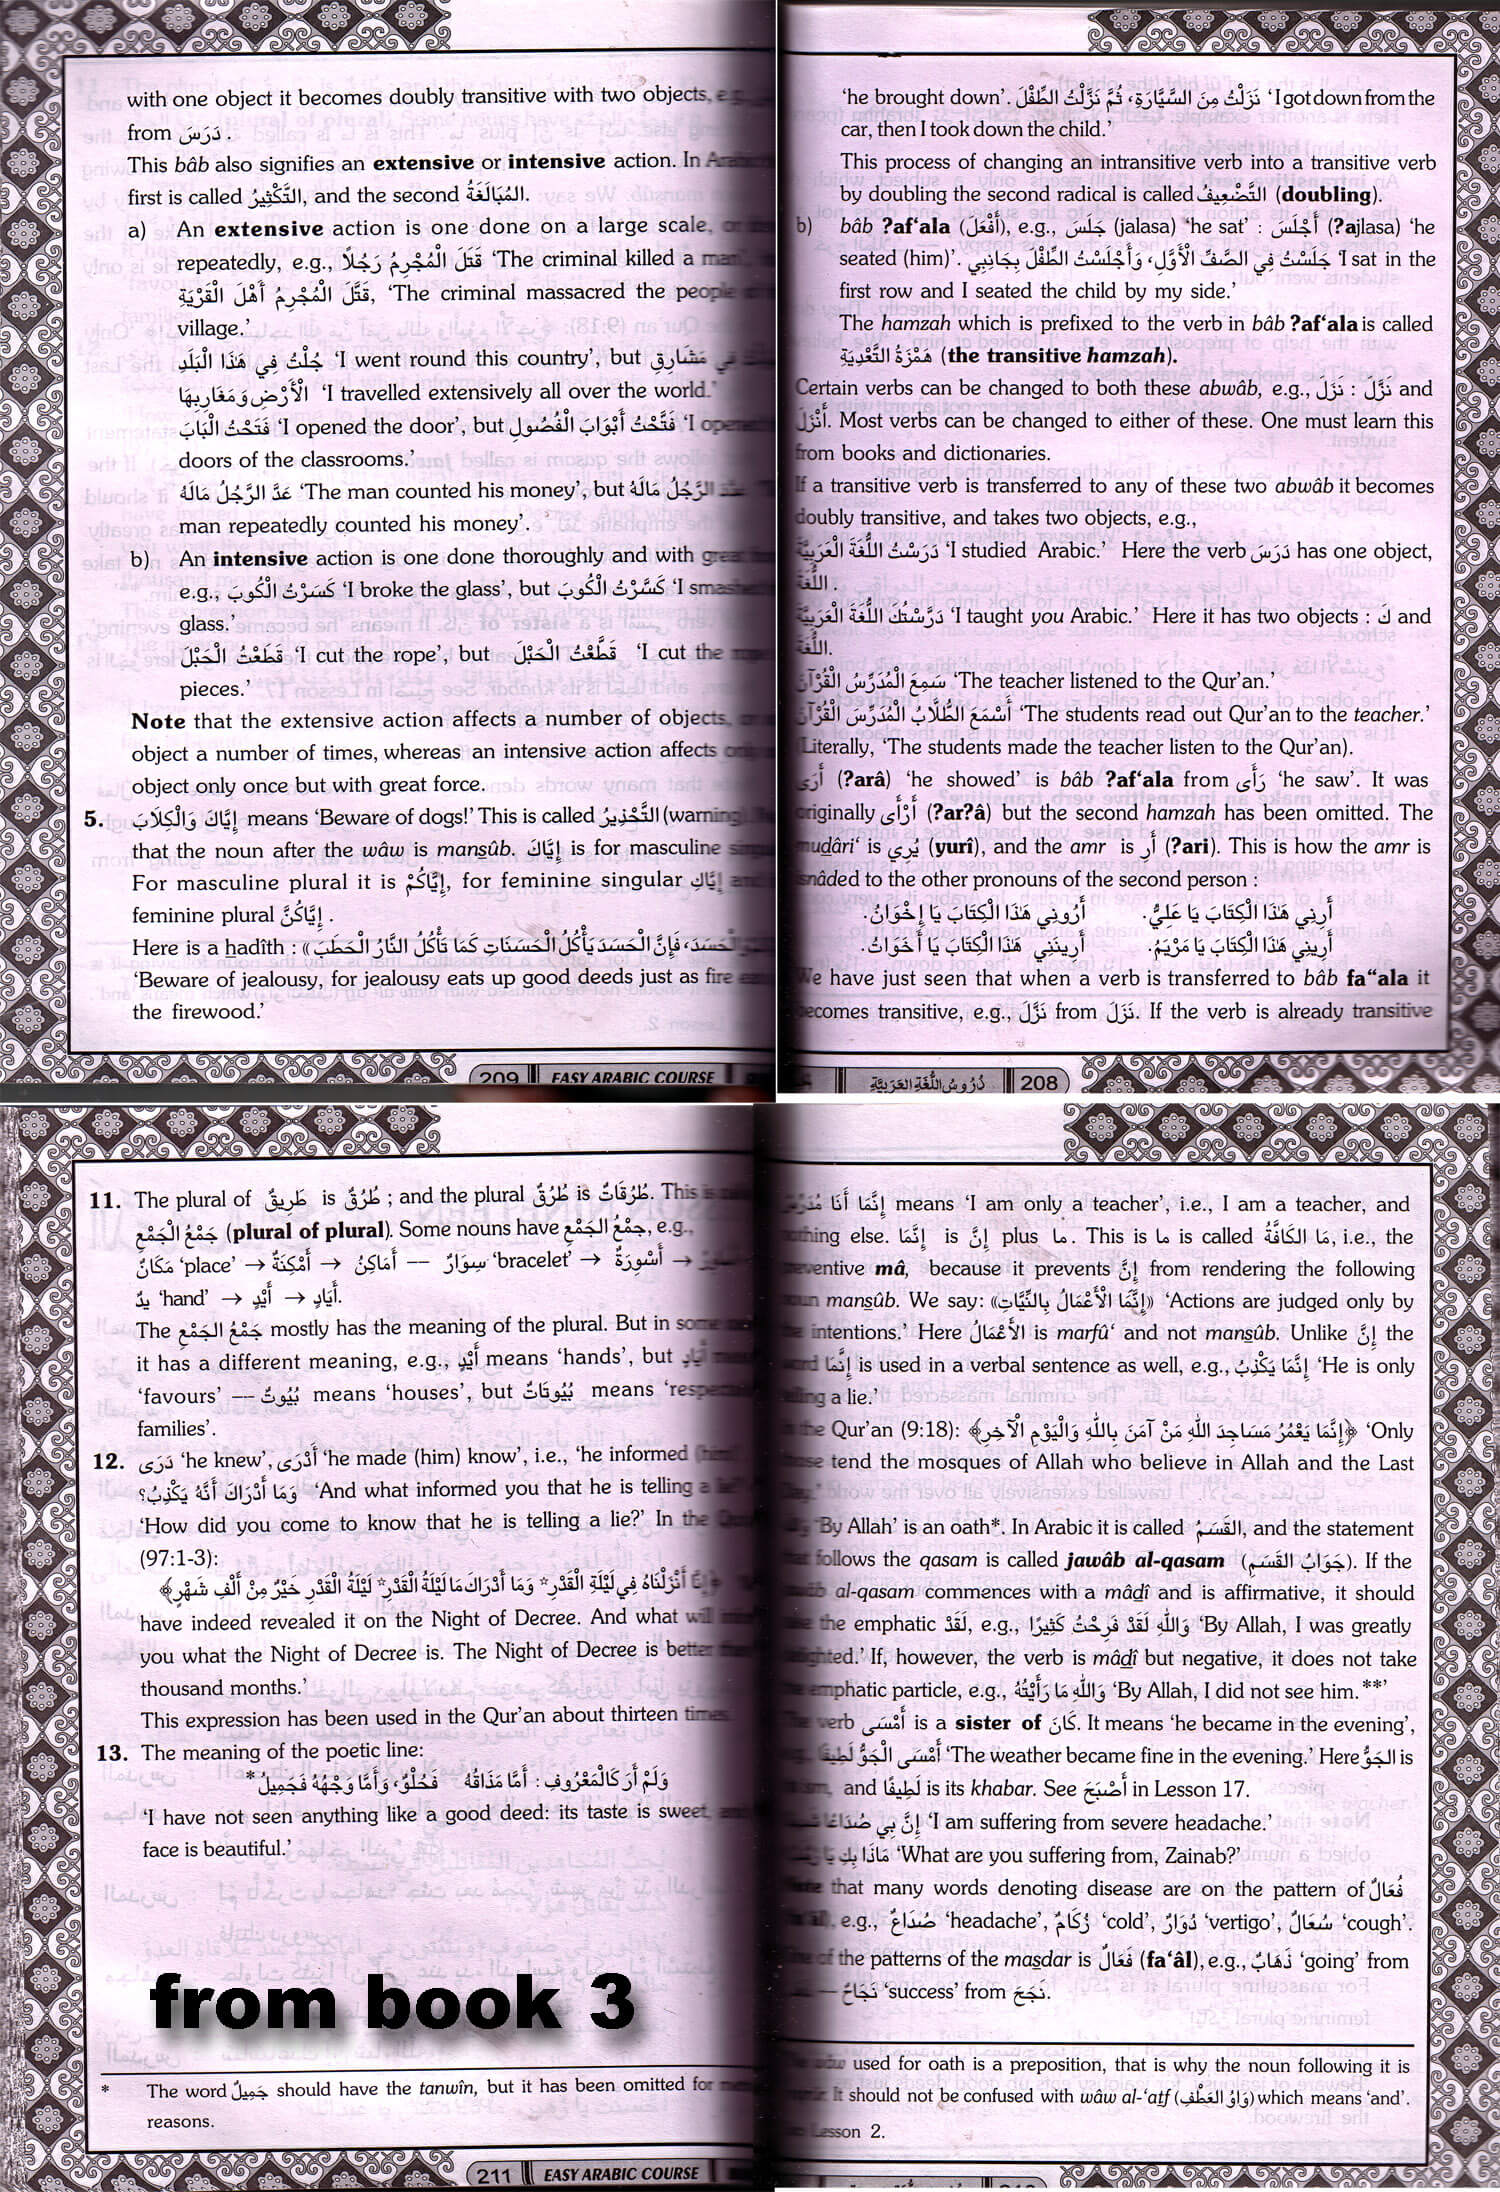 'he brought down'. نَزَلْتُ مِنَ السَّيَّارَةِ، ثُمَّ نَزَّلْتُ الطِّفْلَ 'I got down from the
car, then I took down the child.'
This process of changing an intransitive verb into a transitive verb
by doubling the second radical is called التَّضْعِيفُ (doubling).
b) bâb ʔaf‘ala (أَفْعَلَ), e.g., جَلَسَ (jalasa) 'he sat' : أَجْلَسَ (ʔajlasa) 'he
seated (him)'. جَلَسْتُ فِي الصَّفِّ الْأَوَّلِ، وَأَجْلَسْتُ الطِّفْلَ بِجَانِبِي 'I sat in the
first row and I seated the child by my side.'
The hamzah which is prefixed to the verb in bâb ʔaf‘ala is called
هَمْزَةُ التَّعْدِيَةِ (the transitive hamzah).
Certain verbs can be changed to both these abwâb, e.g., نَزَلَ : نَزَّلَ and
أَنْزَلَ. Most verbs can be changed to either of these. One must learn this
from books and dictionaries.
If a transitive verb is transferred to any of these two abwâb it becomes
doubly transitive, and takes two objects, e.g.,
دَرَسْتُ اللُّغَةَ الْعَرَبِيَّةَ 'I studied Arabic.' Here the verb دَرَسَ has one object,
اللُّغَةَ .
دَرَّسْتُكَ اللُّغَةَ الْعَرَبِيَّةَ 'I taught you Arabic.' Here it has two objects : كَ and
اللُّغَةَ.
سَمِعَ الْمُدَرِّسُ الْقُرْآنَ 'The teacher listened to the Qur'an.'
أَسْمَعَ الطُّلَّابُ الْمُدَرِّسَ الْقُرْآنَ 'The students read out Qur'an to the teacher.'
(Literally, 'The students made the teacher listen to the Qur'an).
أَرَى (ʔarâ) 'he showed' is bâb ʔaf‘ala from رَأَى 'he saw'. It was
originally أَرْأَى (ʔarʔâ) but the second hamzah has been omitted. The
mudâri‘ is يُرِي (yurî), and the amr is أَرِ (ʔari). This is how the amr is
isnâded to the other pronouns of the second person :
أَرِنِي هَذَا الْكِتَابَ يَا عَلِيُّ. أَرُونِي هَذَا الْكِتَابَ يَا إِخْوَانُ.
أَرِينِي هَذَا الْكِتَابَ يَا مَرْيَمُ. أَرِينَنِي هَذَا الْكِتَابَ يَا أَخَوَاتُ.
We have just seen that when a verb is transferred to bâb fa‘‘ala it
becomes transitive, e.g., نَزَّلَ from نَزَلَ. If the verb is already transitive
دُرُوسُ اللُّغَةِ العَرَبِيَّةِ 208
with one object it becomes doubly transitive with two objects,
from دَرَسَ .
This bâb also signifies an extensive or intensive action. In
first is called التَّكْثِيرُ, and the second المُبَالَغَةُ.
a) An extensive action is one done on a large scale,
repeatedly, e.g., قَتَلَ الْمُجْرِمُ رَجُلًا 'The criminal killed a man'
قَتَّلَ الْمُجْرِمُ أَهْلَ الْقَرْيَةِ, 'The criminal massacred the people
village.'
جُلْتُ فِي هَذَا الْبَلَدِ 'I went round this country', but فِي مَشَارِقِ
الْأَرْضِ وَمَغَارِبِهَا 'I travelled extensively all over the world.'
فَتَحْتُ الْبَابَ 'I opened the door', but فَتَّحْتُ أَبْوَابَ الْفُصُولِ 'I opened
doors of the classrooms.'
عَدَّ الرَّجُلُ مَالَهُ 'The man counted his money', but عَدَّدَ الرَّجُلُ مَالَهُ
man repeatedly counted his money'.
b) An intensive action is one done thoroughly and with great
e.g., كَسَرْتُ الْكُوبَ 'I broke the glass', but كَسَّرْتُ الْكُوبَ 'I smashed
glass.'
قَطَعْتُ الْحَبْلَ 'I cut the rope', but قَطَّعْتُ الْحَبْلَ 'I cut the rope
pieces.'
Note that the extensive action affects a number of objects,
object a number of times, whereas an intensive action affects
object only once but with great force.
5. إِيَّاكَ وَالْكِلَابَ means 'Beware of dogs!' This is called التَّحْذِيرُ (warning).
that the noun after the wâw is mansûb. إِيَّاكَ is for masculine
For masculine plural it is إِيَّاكُمْ, for feminine singular إِيَّاكِ
feminine plural إِيَّاكُنَّ .
Here is a hadîth : وَالْحَسَدَ، فَإِنَّ الْحَسَدَ يَأْكُلُ الْحَسَنَاتِ كَمَا تَأْكُلُ النَّارُ الْحَطَبَ»
'Beware of jealousy, for jealousy eats up good deeds just as fire
the firewood.'
209 EASY ARABIC COURSE
إِنَّمَا أَنَا مُدَرِّسٌ means 'I am only a teacher', i.e., I am a teacher, and
nothing else. إِنَّمَا is إِنَّ plus مَا . This is مَا is called مَا الكَافَّةُ, i.e., the
preventive mâ, because it prevents إِنَّ from rendering the following
noun mansûb. We say: «إِنَّمَا الْأَعْمَالُ بِالنِّيَّاتِ» 'Actions are judged only by
the intentions.' Here الأَعْمَالُ is marfû‘ and not mansûb. Unlike إِنَّ the
word إِنَّمَا is used in a verbal sentence as well, e.g., إِنَّمَا يَكْذِبُ 'He is only
telling a lie.'
In the Qur'an (9:18): ﴿إِنَّمَا يَعْمُرُ مَسَاجِدَ اللهِ مَنْ آمَنَ بِاللهِ وَالْيَوْمِ الْآخِرِ﴾ 'Only
those tend the mosques of Allah who believe in Allah and the Last
Day.'
'By Allah' is an oath*. In Arabic it is called القَسَمُ, and the statement
that follows the qasam is called jawâb al-qasam (جَوَابُ القَسَمِ). If the
jawâb al-qasam commences with a mâdî and is affirmative, it should
take the emphatic لَقَدْ, e.g., وَاللهِ لَقَدْ فَرِحْتُ كَثِيرًا 'By Allah, I was greatly
delighted.' If, however, the verb is mâdî but negative, it does not take
the emphatic particle, e.g., وَاللهِ مَا رَأَيْتُهُ 'By Allah, I did not see him.**'
The verb أَمْسَى is a sister of كَانَ. It means 'he became in the evening',
أَمْسَى الْجَوُّ لَطِيفًا 'The weather became fine in the evening.' Here الجَوُّ is
ism, and لَطِيفًا is its khabar. See أَصْبَحَ in Lesson 17.
إِنَّ بِي صُدَاعًا 'I am suffering from severe headache.'
مَاذَا بِكِ يَا زَيْنَبُ 'What are you suffering from, Zainab?'
Note that many words denoting disease are on the pattern of فُعَالٌ
e.g., صُدَاعٌ 'headache', زُكَامٌ 'cold', دُوَارٌ 'vertigo', سُعَالٌ 'cough'.
One of the patterns of the masdar is فَعَالٌ (fa‘âl), e.g., ذَهَابٌ 'going' from
— نَجَاحٌ 'success' from نَجَحَ.
The wâw used for oath is a preposition, that is why the noun following it is
It should not be confused with wâw al-‘atf (وَاوُ العَطْفِ) which means 'and'.
Lesson 2.
11. The plural of طَرِيقٌ is طُرُقٌ ; and the plural طُرُقٌ is طُرُقَاتٌ. This is
جَمْعُ الْجَمْعِ (plural of plural). Some nouns have جَمْعُ الجَمْعِ, e.g.,
مَكَانٌ 'place' → أَمْكِنَةٌ → أَمَاكِنُ — سِوَارٌ 'bracelet' → أَسْوِرَةٌ →
يدٌ 'hand' → أَيْدٍ → أَيَادٍ.
The جَمْعُ الجَمْعِ mostly has the meaning of the plural. But in some
it has a different meaning, e.g., أَيْدٍ means 'hands', but أَيَادٍ
'favours' — بُيُوتٌ means 'houses', but بُيُوتَاتٌ means
families'.
12. دَرَى 'he knew', أَدْرَى 'he made (him) know', i.e., 'he informed (him)
وَمَا أَدْرَاكَ أَنَّهُ يَكْذِبُ؟ 'And what informed you that he is telling a lie?'
'How did you come to know that he is telling a lie?' In the
(97:1-3):
إِنَّا أَنْزَلْنَاهُ فِي لَيْلَةِ الْقَدْرِ* وَمَا أَدْرَاكَ مَا لَيْلَةُ الْقَدْرِ* لَيْلَةُ الْقَدْرِ خَيْرٌ مِنْ أَلْفِ شَهْرٍ﴾
have indeed revealed it on the Night of Decree. And what will
you what the Night of Decree is. The Night of Decree is better
thousand months.'
This expression has been used in the Qur'an about thirteen times.
13. The meaning of the poetic line:
وَلَمْ أَرَ كَالْمَعْرُوفِ : أَمَّا مَذَاقُهُ فَحُلْوٌ، وَأَمَّا وَجْهُهُ فَجَمِيلُ*
'I have not seen anything like a good deed: its taste is sweet,
face is beautiful.'
from book 3
* The word جَمِيلٌ should have the tanwîn, but it has been omitted for
reasons.
211 EASY ARABIC COURSE